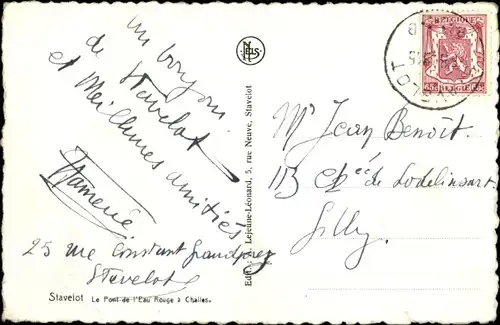 un bonjour
de Stavelot
et Meilleures amitiés
25 rue Constant Grandprez
Stavelot
Stavelot Le Pont de l'Eau Rouge à Challes.
Edit.: Lejeune-Léonard, 5, rue Neuve, Stavelot
NELS
BELGIQUE
Mr Jean Benoît.
113 Chée de Lodelinsart
Gilly.